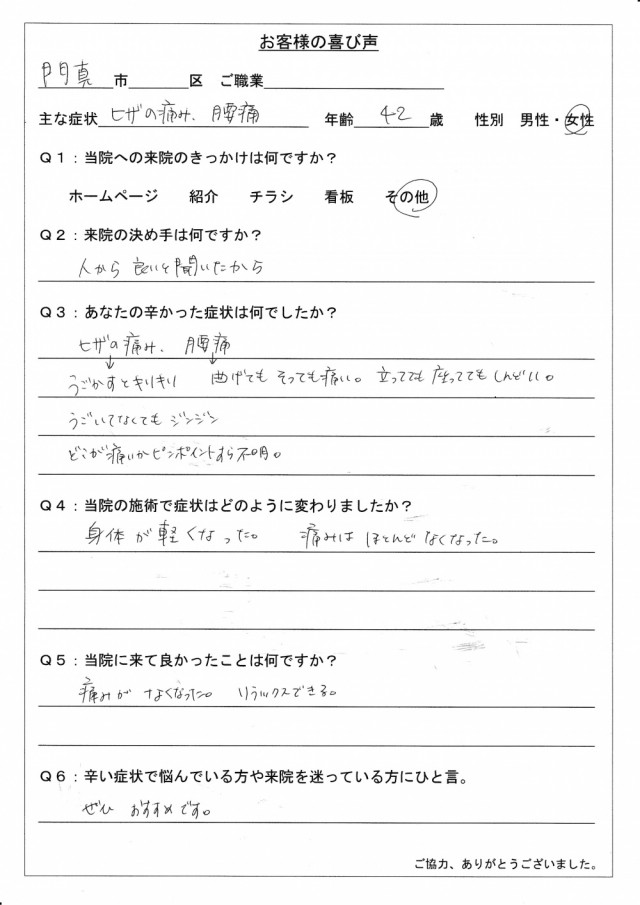 お客様の喜び声
門真市 区 ご職業
主な症状 ヒザの痛み、腰痛 年齢 42 歳 性別 男性・女性
Q1:当院への来院のきっかけは何ですか?
ホームページ 紹介 チラシ 看板 その他
Q2:来院の決め手は何ですか?
人から良いと聞いたから
Q3:あなたの辛かった症状は何でしたか?
ヒザの痛み、 腰痛
↓ ↓
うごかすとキリキリ 曲げてもそっても痛い。立ってても座っててもしんどい。
うごいてなくてもジンジン
どこが痛いかピンポイントすら不明。
Q4:当院の施術で症状はどのように変わりましたか?
身体が軽くなった。 痛みはほとんどなくなった。
Q5:当院に来て良かったことは何ですか?
痛みがなくなった。 リラックスできる。
Q6:辛い症状で悩んでいる方や来院を迷っている方にひと言。
ぜひ おすすめです。
ご協力、ありがとうございました。